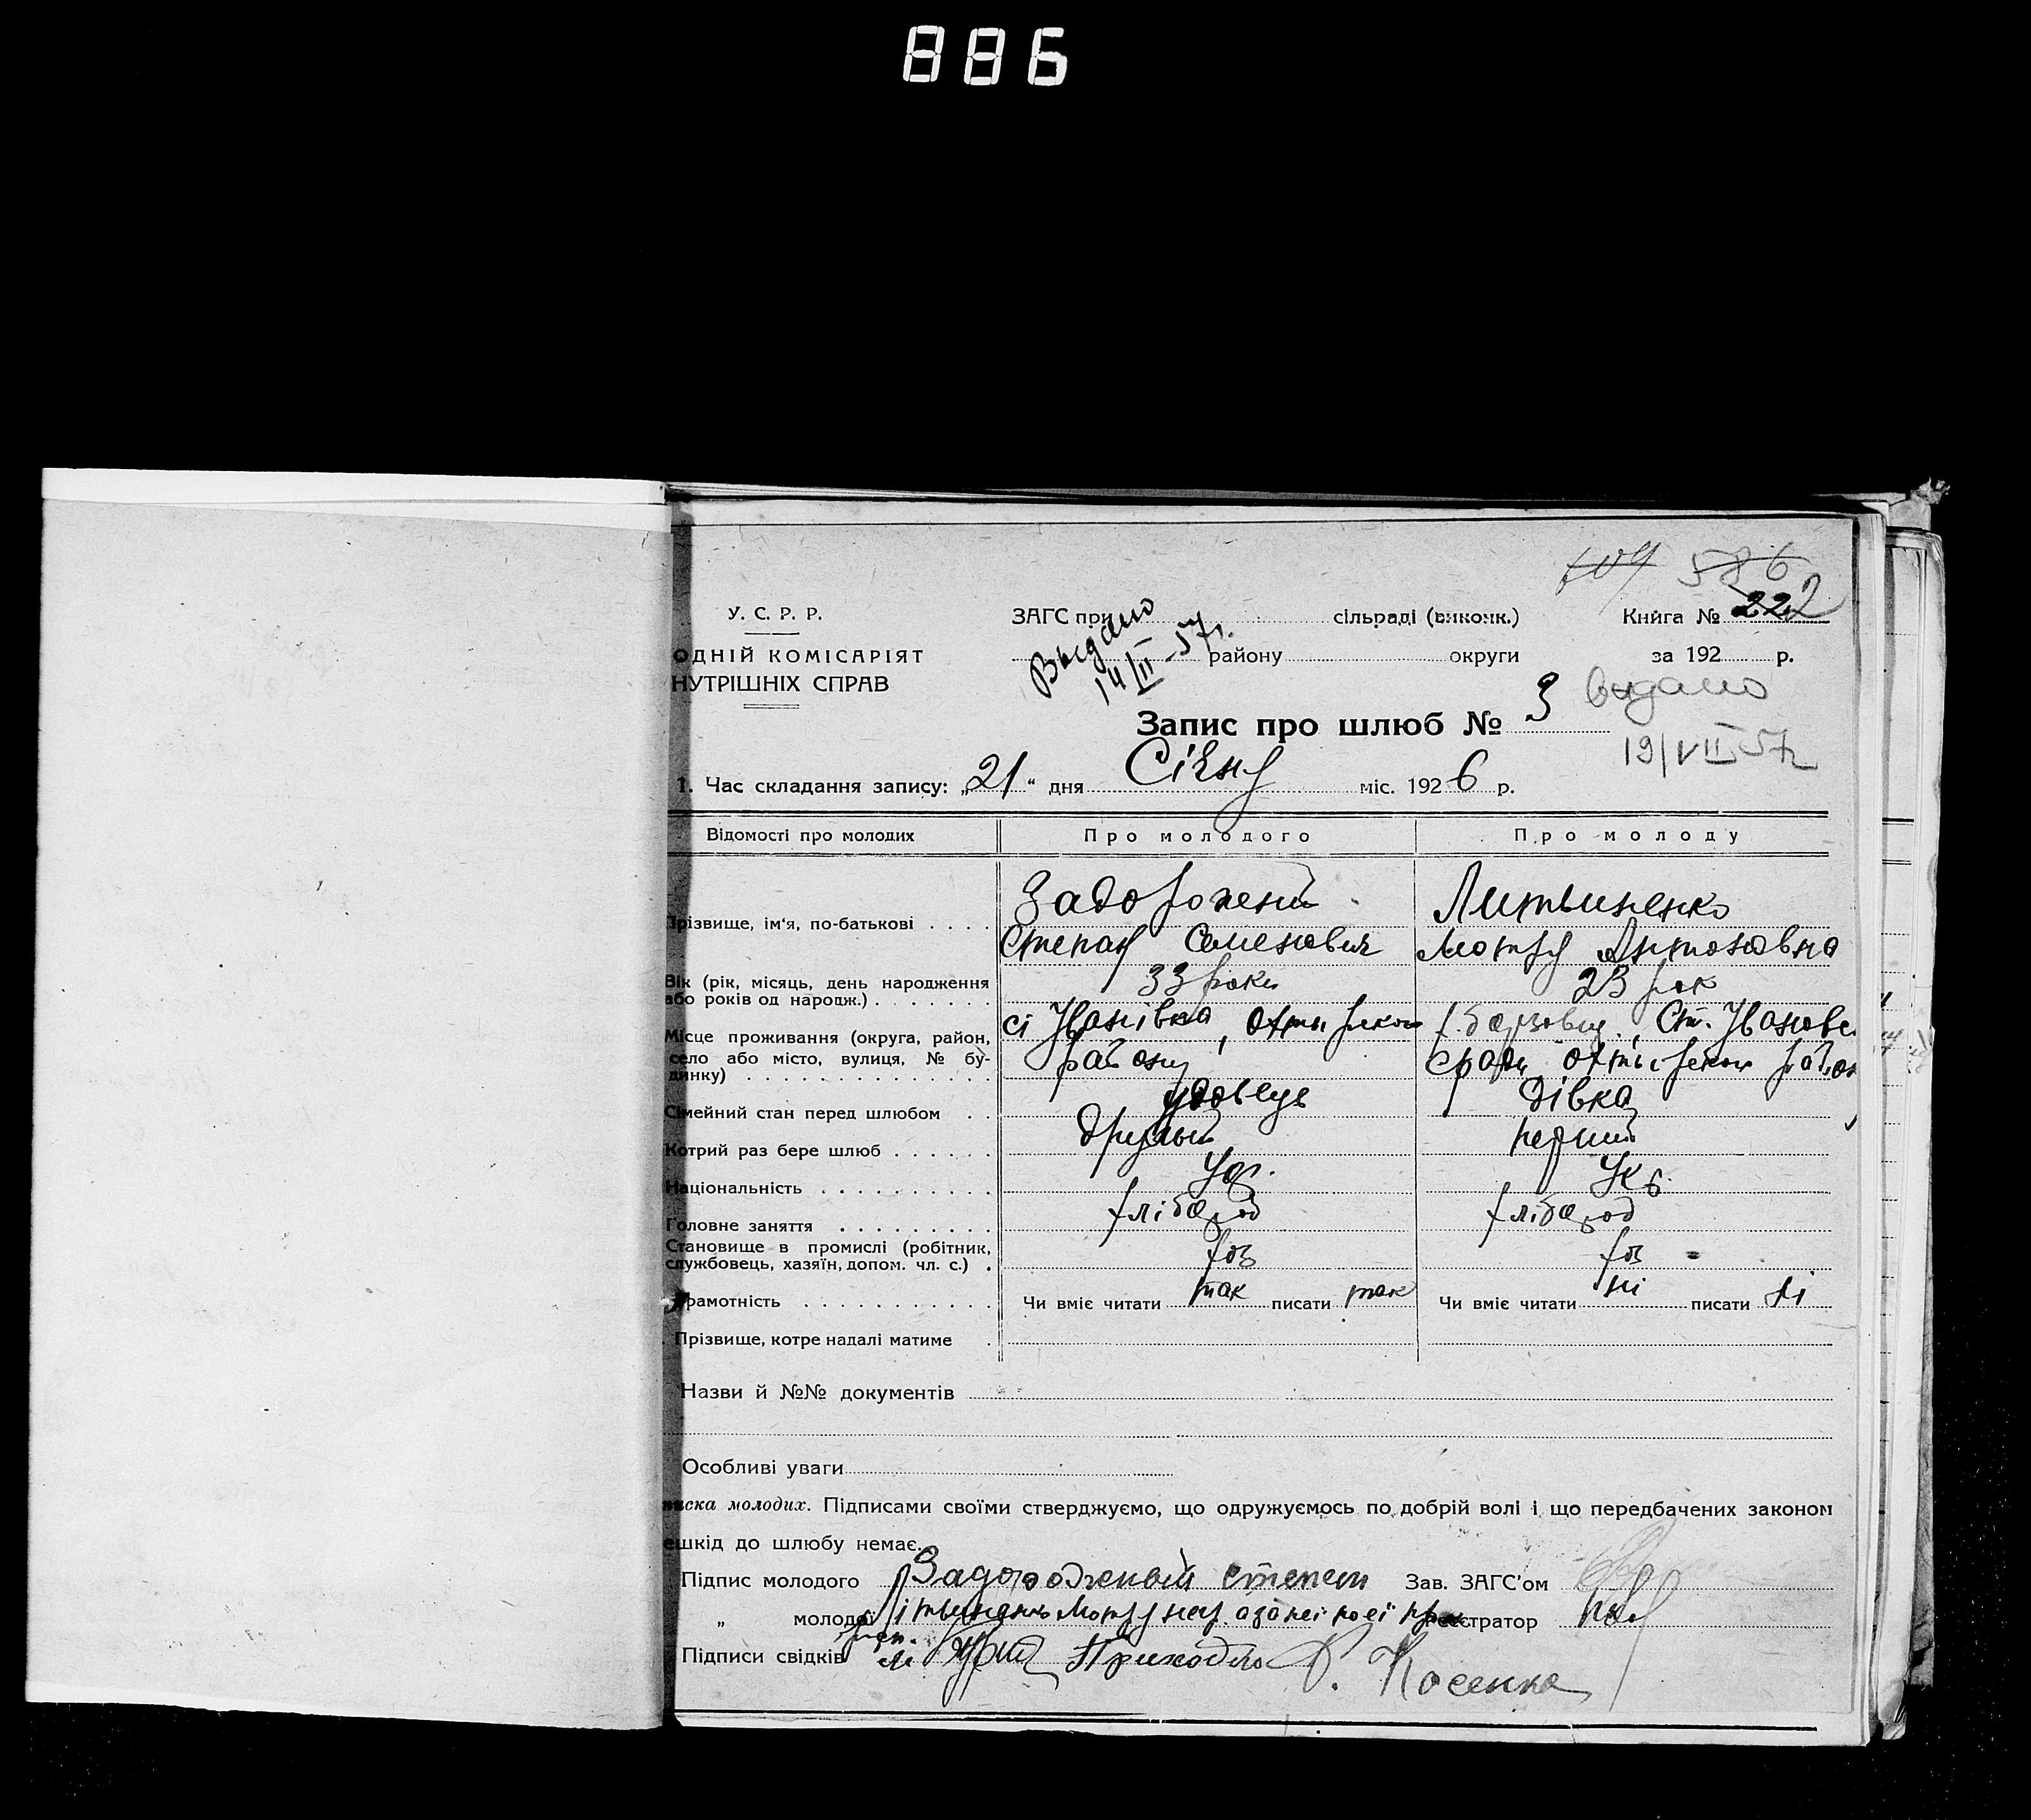 886
604 586
У. С. Р. Р. ЗАГС при сільраді (виконк.) Книга № 222
ОДНІЙ КОМІСАРІЯТ району округи за 192 р.
НУТРІШНІХ СПРАВ
Выдано
14/II-57г.
Видано
19/VII 57г
Запис про шлюб № 3
1. Час складання запису: „21“ дня Січня міс. 1926 р.
Відомості про молодих Про молодого Про молоду
Прізвище, ім‘я, по-батькові . . . . Задорожений Литвиненко
Степан Семенович Мотря Антоновна
Вік (рік, місяць, день народження 33 роки 23 рок
або років од народж.) . . . . . . .
Місце проживання (округа, район, сі Іванівка, Охтирськом х. Ст. Іванове
село або місто, вулиця, № бу- району сради Охтирськом район
динку) . . . . . . . . . . . . . .
Сімейний стан перед шлюбом . . удовець дівка
Котрий раз бере шлюб . . . . . . другий перший
Національність . . . . . . . . . . Укр. Укр.
Головне заняття . . . . . . . . . хлібороб хлібороб
Становище в промислі (робітник, хоз хоз
службовець, хазяїн, допом. чл. с.) .
Грамотність . . . . . . . . . . . Чи вміє читати так писати так Чи вміє читати ні писати ні
Прізвище, котре надалі матиме .
Назви й №№ документів
Особливі уваги
писка молодих. Підписами своїми стверджуємо, що одружуємось по добрій волі і що передбачених законом
ешкід до шлюбу немає.
Підпис молодого Задородженый степан Зав. ЗАГС'ом
„ молодої Літвиненко Мотря неї Реєстратор
Підписи свідків Приходько Косенко